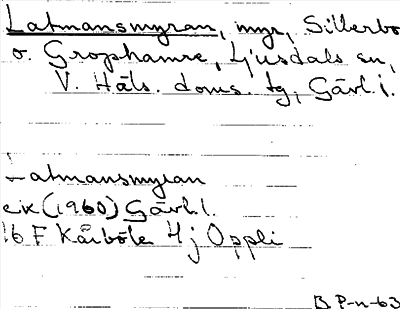 Latmansmyran, myr, Sillerbo
o. Grophamre, Ljusdals sn,
V. Häls. doms. tg, Gävl. l.
Latmansmyran
ek (1960) Gävl. l.
16 F Kårböle 4 j Oppli
B P-n-63